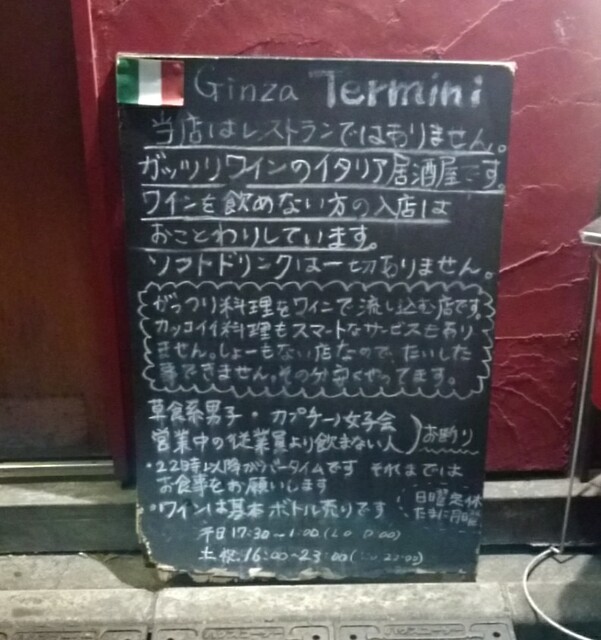 Ginza Termini
当店はレストランではありません。
ガッツリワインのイタリア居酒屋です。
ワインを飲めない方の入店は
おことわりしています。
ソフトドリンクは一切ありません。
がっつり料理をワインで流し込む店です。
カッコイイ料理もスマートなサービスもあり
ません。しょーもない店なので、たいした
事できません。その分安くやってます。
草食系男子・カプチーノ女子会
営業中の従業員より飲まない人
お断り
・22時以降がバータイムです それまでは
お食事をお願いします
・ワインは基本ボトル売りです
日曜定休
たまに月曜
平日17:30~1:00(L.O
土祝16:00~23:00(22:00)